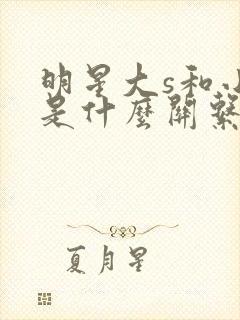 明星大s和小
是什麼關繫
夏月星